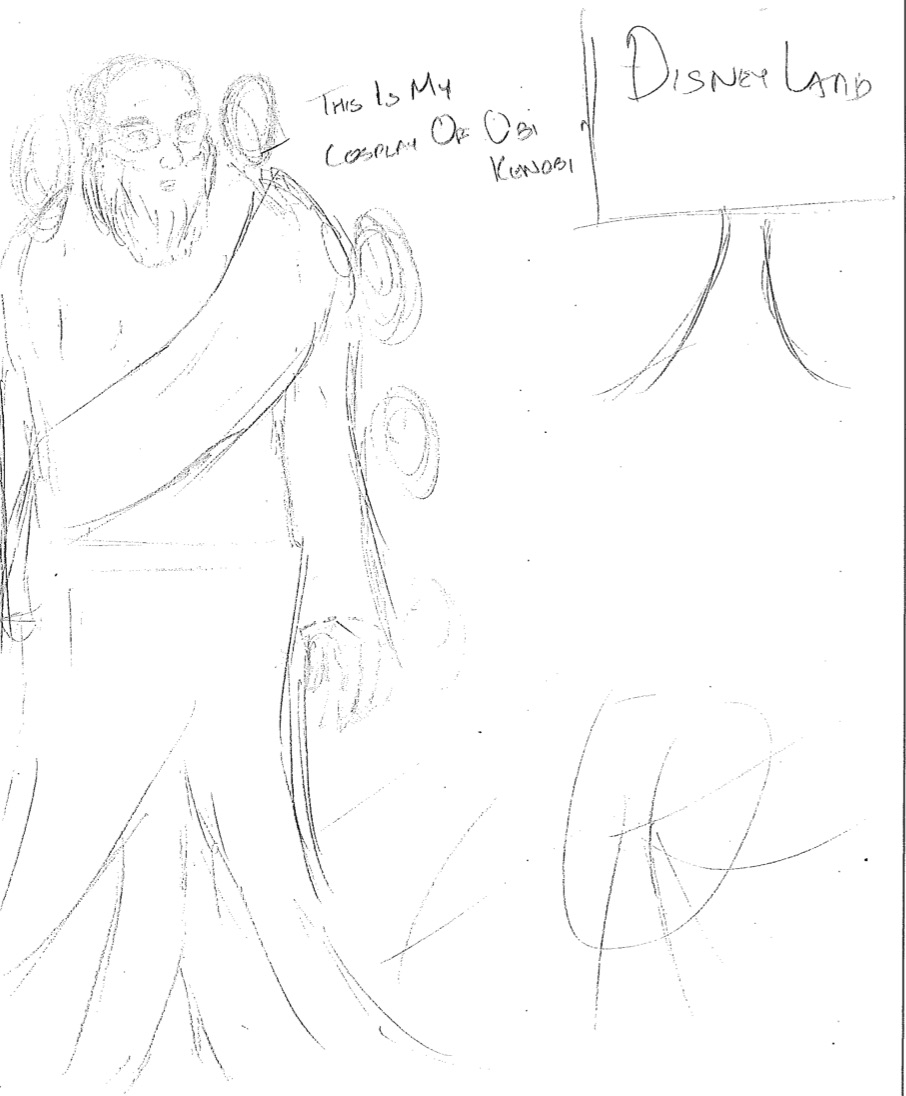 THIS IS MY
COSPLAY OF OBI
KENOBI
DISNEY LAND